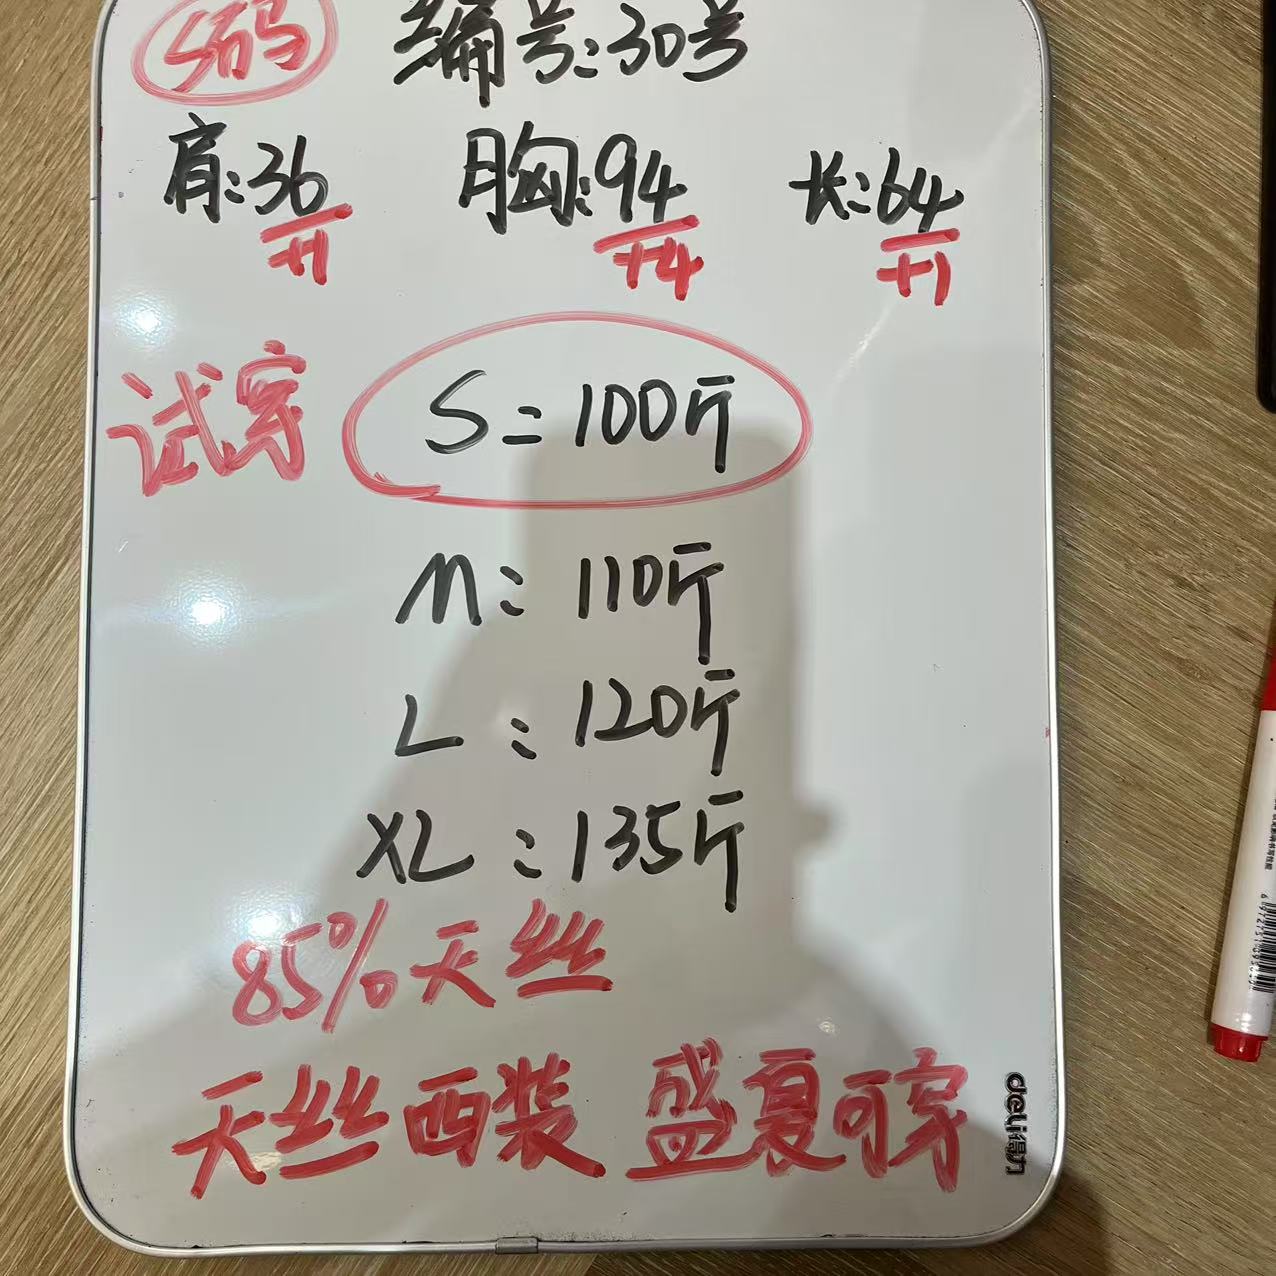 S码 编号:30号
肩:36 胸:94 长:64
+1 +4 +1
试穿 S=100斤
M:110斤
L:120斤
XL:135斤
85%天丝
天丝西装 盛夏可穿
deli得力